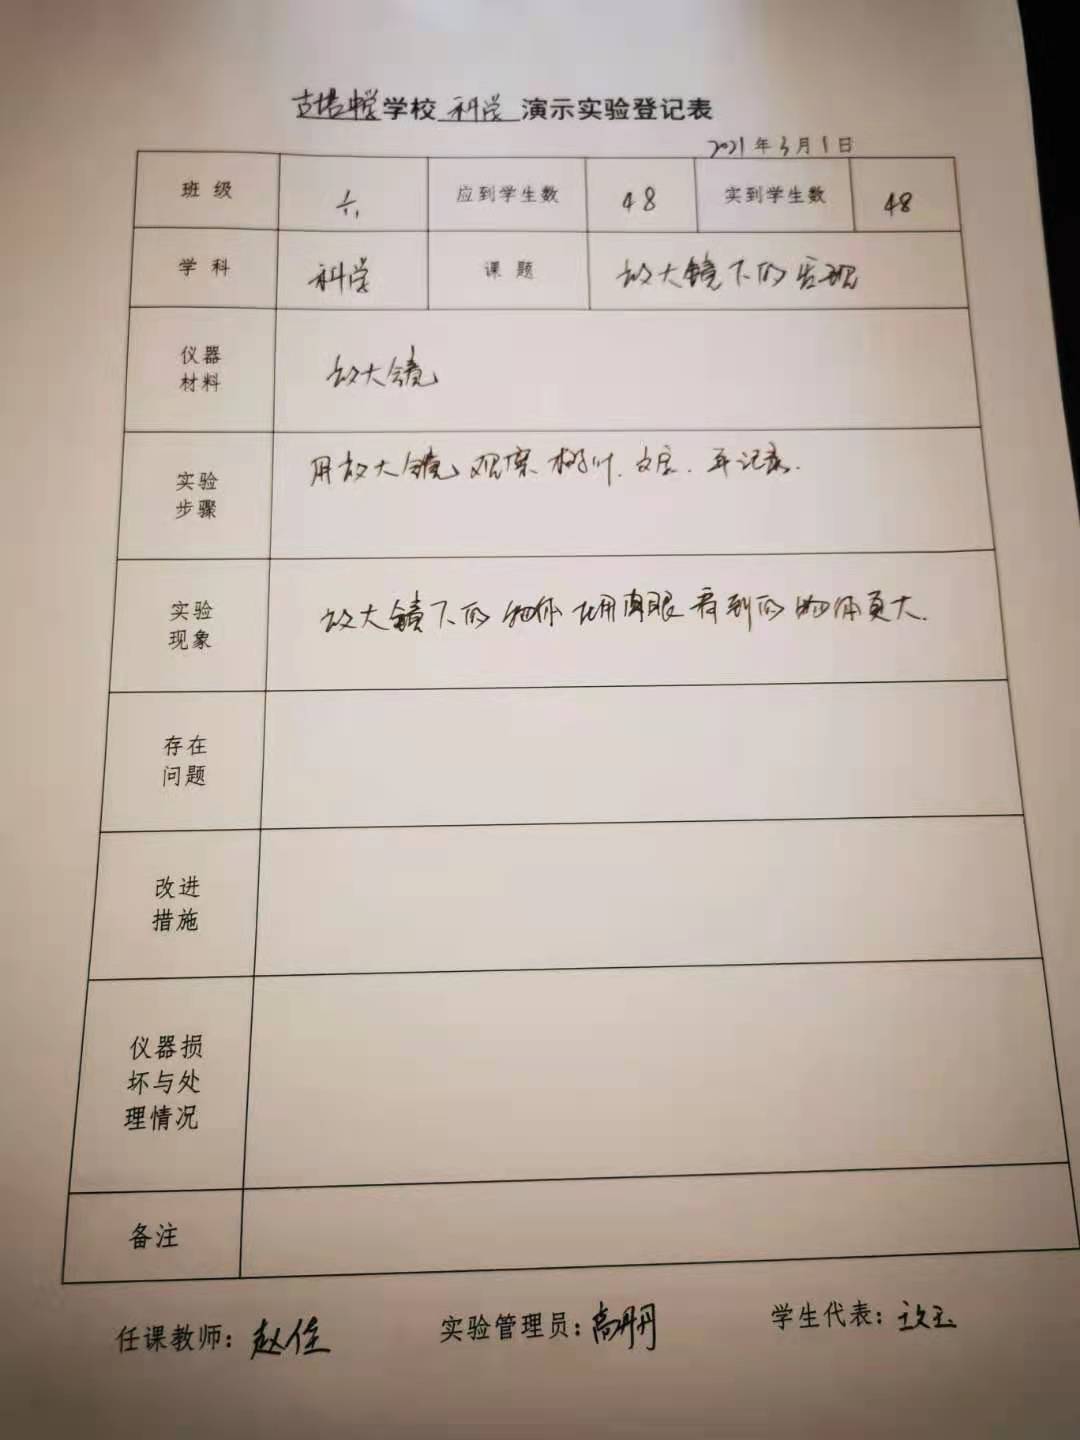 学校 科学 演示实验登记表
2021年3月1日
班级 六 应到学生数 48 实到学生数 48
学科 科学 课题 放大镜下的发现
仪器
材料
放大镜
实验
步骤
用放大镜观察树叶、文字、并记录.
实验
现象
放大镜下的物体比用肉眼看到的物体更大.
存在
问题
改进
措施
仪器损
坏与处
理情况
备注
任课教师: 赵佳 实验管理员: 高丹 学生代表: